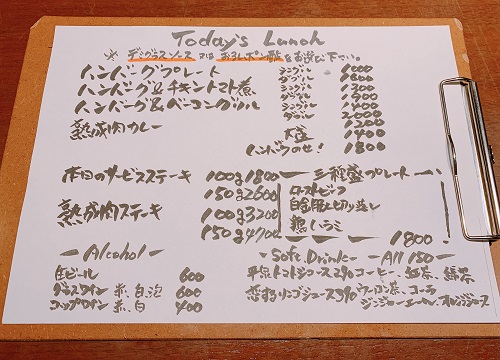 Today's Lunch
※ デミグラスソース 又は おろしポン酢 をお選び下さい。
ハンバーグプレート シングル 1000
ダブル 1600
ハンバーグ&チキントマト煮 シングル 1300
ダブル 1900
ハンバーグ&ベーコングリル シングル 1400
ダブル 2000
熟成肉カレー 1200
大盛 1400
ハンバーグのせ! 1800
本日のサービスステーキ 100g 1800
150g 2600
熟成肉ステーキ 100g 3200
150g 4700
三種盛プレート
ローストビーフ
鶏ハラミ
1800
Alcohol
生ビール 600
グラスワイン 赤、白、泡 600
コップワイン 赤、白 400
Soft Drink All 150
平気トマトジュース 290 コーヒー、紅茶、緑茶
恋するリンゴジュース 390 ウーロン茶、コーラ
ジンジャーエール、オレンジジュース